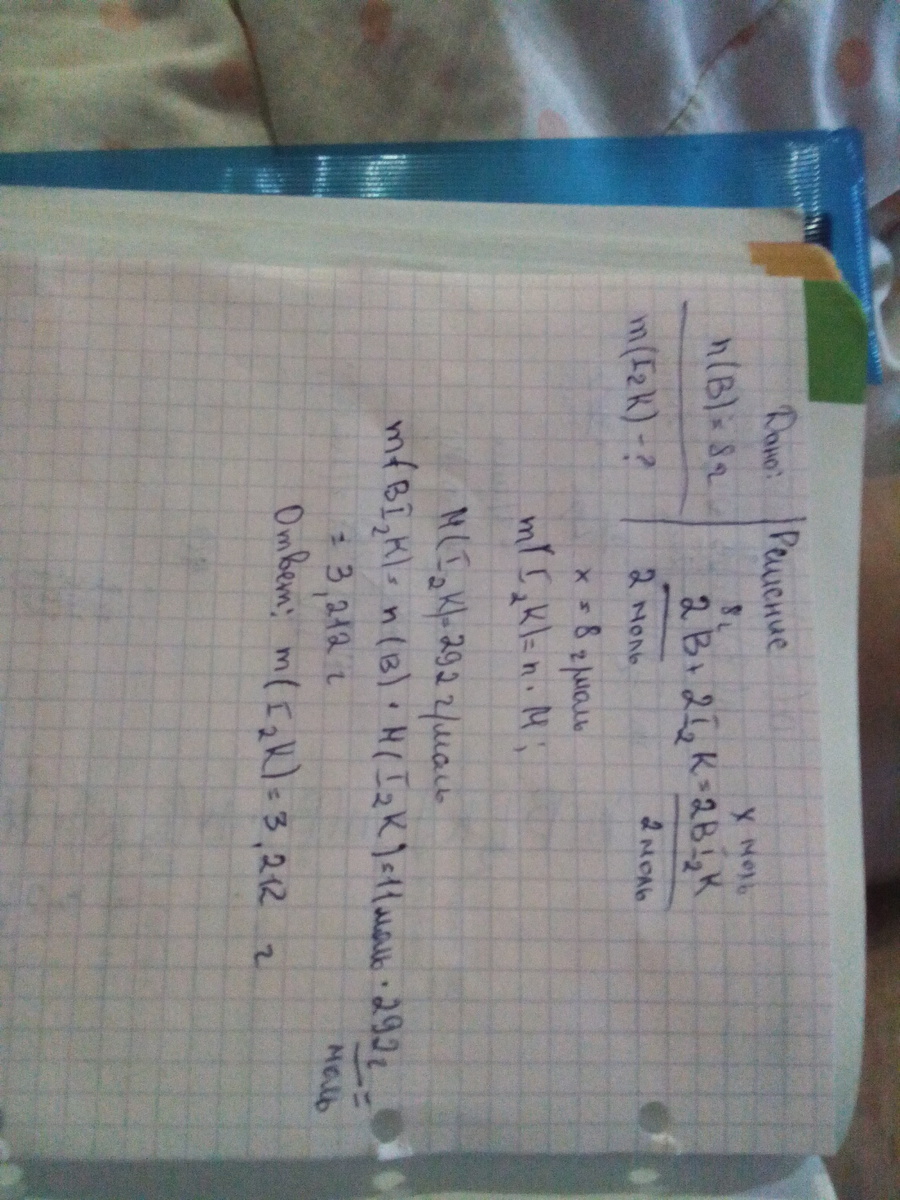 Дано:
n(B) = 8 г
m(I₂K) - ?
Решение
8 г x моль
2B + 2I₂K = 2BI₂K
2 моль 2 моль
x = 8 г/моль
m(I₂K) = n · M;
M(I₂K) = 292 г/моль
m(BI₂K) = n(B) · M(I₂K) = 11 моль · 292 г/моль =
= 3,212 г
Ответ: m(I₂K) = 3,212 г